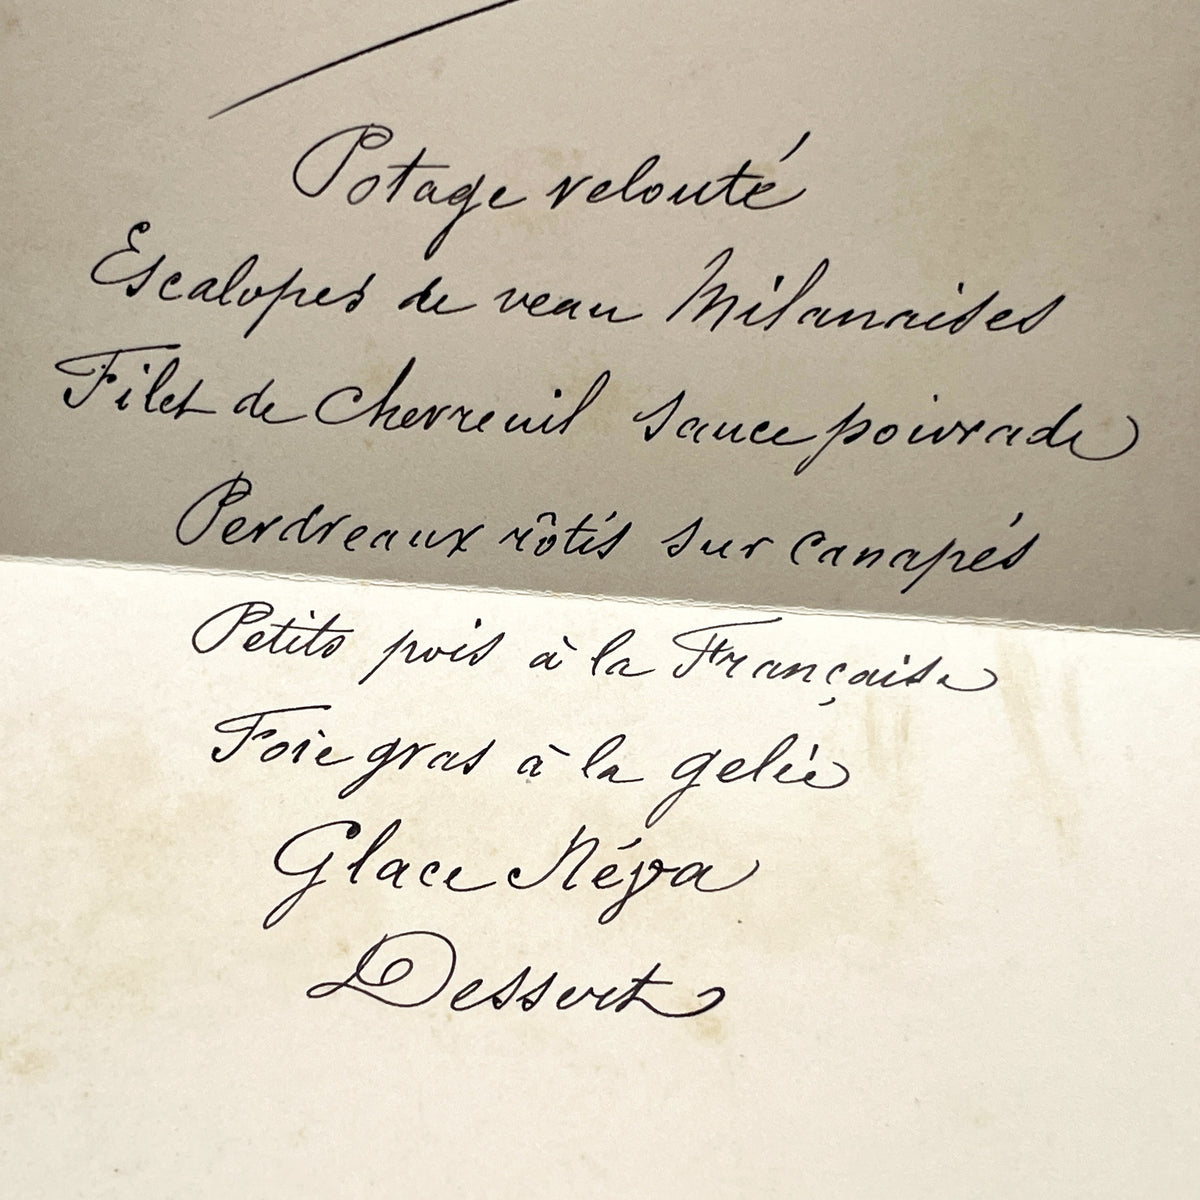 Potage velouté
Escalopes de veau Milanaises
Filet de Chevreuil Sauce poivrade
Perdreaux rôtis sur canapés
Petits pois à la Française
Foie gras à la gelée
Glace Néva
Dessert